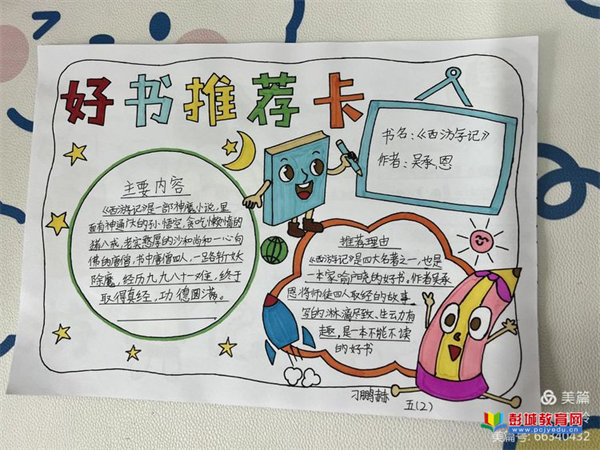 好书推荐卡
书名:《西游记》
作者:吴承恩
主要内容
《西游记》是一部神魔小说,里
面有神通广大的孙悟空,贪吃懒惰的
猪八戒,老实憨厚的沙和尚和一心向
佛的唐僧,书中唐僧四人,一路斩妖
除魔,经历九九八十一难,终于
取得真经,功德圆满。
推荐理由
《西游记》是四大名著之一,也是
一本家喻户晓的好书。作者吴承
恩将师徒四人取经的故事
写的淋漓尽致、生动有
趣,是一本不能不读
的好书
刁鹏赫
五(2)
美篇
彭城教育网
www.pcjyedu.cn
美篇号: 66340432